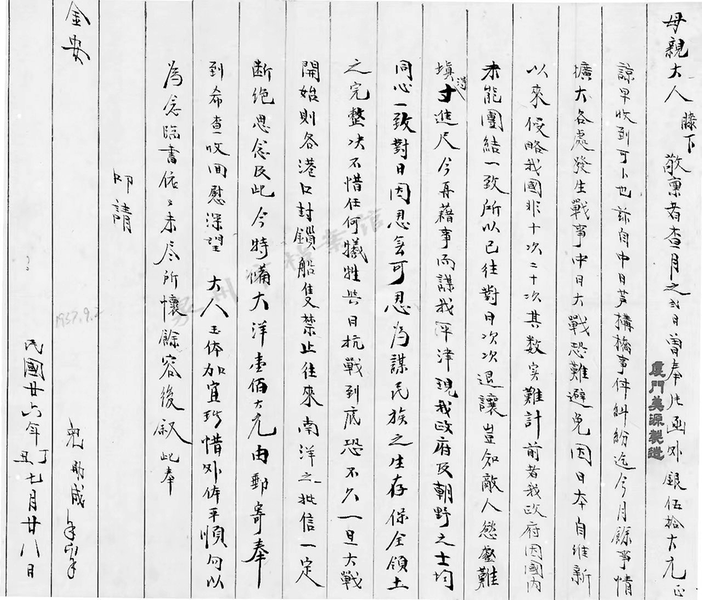 母親大人膝下敬禀者查月之
日曾奉此函外銀伍拾大元
諒早收到可卜也茲自中日芦構橋事件糾紛迄今月餘事情
擴大各處發生戰事中日大戰恐難避免因日本自維新
以來侵略我國非十次二十次其數实難計前者我政府因國內
未能團結一致所以已往對日次次退讓豈知敵人慾壑難
填寸進尺今再藉事而謀我平津現我政府及朝野之士均
同心一致對日因忍無可忍為謀民族之生存保全領土
之完整决不惜任何犧牲與日抗戰到底恐不久一旦大戰
開始則各港口封鎖船隻禁止往來南洋之批信一定
断絶思念及此今特備大洋壹佰大元由郵寄奉
到希查收回慰深望 大人玉体加宜珍惜外俱平順勿以
為念臨書依依未尽所懷餘容後叙此奉
叩請
金安
兒
民國廿六年丁丑七月廿八日
廈門美源製造
1937.9.2